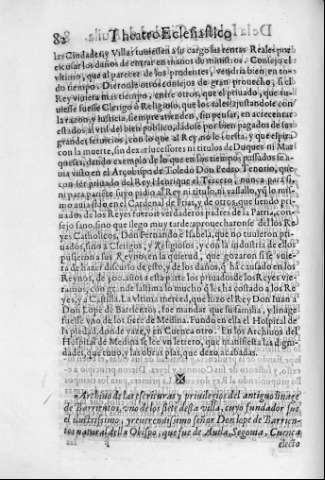 82 Theatro Eclesiastico
las Ciudades, y Villas tuuiessen a su cargo las rentas Reales por
escusar los daños de entrar en manos de ministros. Consejo el
vltimo, que al parecer de los prudentes, vendria bien en to
do tiempo. Diéronle otros consejos de gran prouecho, si el
Rey viuiera mas tiempo, entre otros, que el priuado, que tu
uiesse fuesse Clerigo ó Religioso, que los tales ajustandole con
la razon, y justicia, siempre atienden, sin pensar, en acrecentar
estados, al vtil del bien publico,
grandes, seruicios, con lo que al Rey no le cuesta, y que espira
con la muerte, sin dexar successores ni titulos de Duques ni Mar
queses, dando exemplo de lo que en sus tiempos passados se a
uia visto en el Arçobispo de Toledo Don Pedro Tenorio, que
con ser priuado del Rey Henrique el Tercero, nunca para si,
ni para pariente suyo pidio al Rey ni titulo, ni vassallo, y lo mis
mo auia sido en el Cardenal de Frias, y de otros, que siendo pri
uados de los Reyes fueron verdaderos padres de la Patria, con
sejo sano, sino que llego muy tarde: aprouecharonse del los Re
yes Catholicos, Don Fernando è Isabela, que no tuuieron pri
uados, sino a Clerigos, y Religiosos, y con la industria de ellos
pusieron a sus Reynos en la quietud, que gozaron si se vuie
ra de hazer discurso de esto, y de los daños, q han causado en los
Reynos, de 300. años a esta parte los priuados de los Reyes vie
ramos, con grande lastima lo mucho q les ha costado a los Re
yes, y a Castilla. La vltima merced, que hizo el Rey Don Iuan à
Don Lope de Barrientos, fue mandar que su familia, y linage
fuesse vno de los siete de Medina. Fundo en ella el Hospital de
la piedad, donde yaze, y en Cuenca otro. En los Archiuos del
Hospital de Medina se lee vn letrero, que manifiesta las digni
dades, que tuuo, y las obras pias, que dexo acabadas.
Archiuo de las escrituras y priuilegios del antiguo linage
de Barrientos, vno de los siete desta villa, cuyo fundador fue
el illustrissimo, y reuerendissimo señor Don lope de Barrien
tos natural della Obispo, que fue de Auila, Segouia, Cuenca
electo